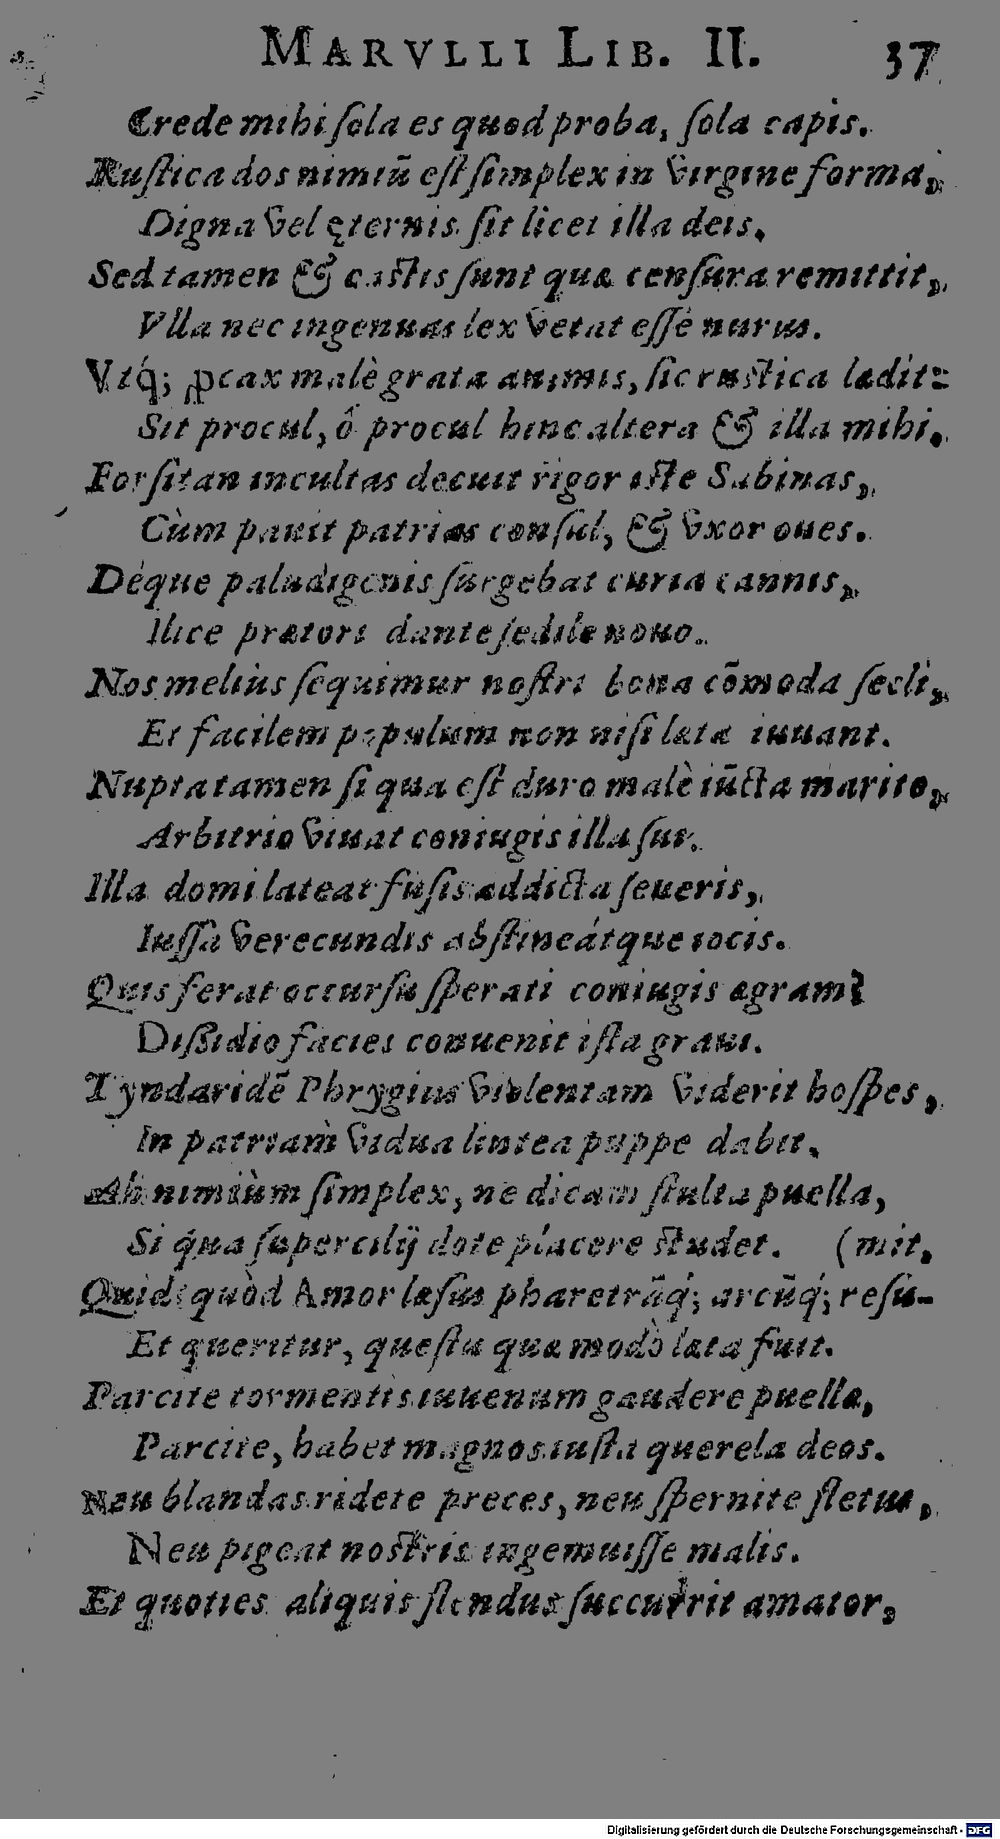 MARVLLI LIB. II. 37
Crede mihi ſola es quod proba, ſola capis.
Ruſtica dos nimiū eſt ſimplex in virgine forma,
Digna vel ęternis ſit licet illa deis.
Sed tamen & caſtis ſunt quæ cenſura remittit,
Vlla nec ingenuas lex vetat eſſe nurus.
Vtq́; ꝓcax malè grata animis, ſic ruſtica lædit:
Sit procul, ô procul hinc altera & illa mihi.
Forſitan incultas decuit rigor iſte Sabinas,
Cùm pauit patrias conſul, & vxor oues.
Déque paludigenis ſurgebat curia cannis,
Ilice prætori dante ſedile nouo.
Nos meliùs ſequimur noſtri bona cōmoda ſecli,
Et facilem populum non niſi læta iuuant.
Nupta tamen ſi qua eſt duro malè iūcta marito,
Arbitrio viuat coniugis illa ſui.
Illa domi lateat fuſis addicta ſeueris,
Iuſſa verecundis abſtineátque iocis.
Quis ferat occurſu ſperati coniugis ægram?
Diſſidio facies conuenit iſta graui.
Tyndaridē Phrygius violentam viderit hoſpes,
In patriam vidua lintea puppe dabit.
Ah nimiùm ſimplex, ne dicam ſtulta puella,
Si q́ua ſupercilij dote placere ſtudet. (mit,
Quid quòd Amor læſus pharetrāq́; arcūq́; reſu-
Et queritur, queſtu quæ modò læta fuit.
Parcite tormentis iuuenum gaudere puellæ,
Parcite, habet magnos iuſta querela deos.
Neu blandas ridete preces, neu ſpernite fletus,
Neu pigeat noſtris ingemuiſſe malis.
Et quoties aliquis flendus ſuccurrit amator,
Digitalisierung gefördert durch die Deutsche Forschungsgemeinschaft - DFG